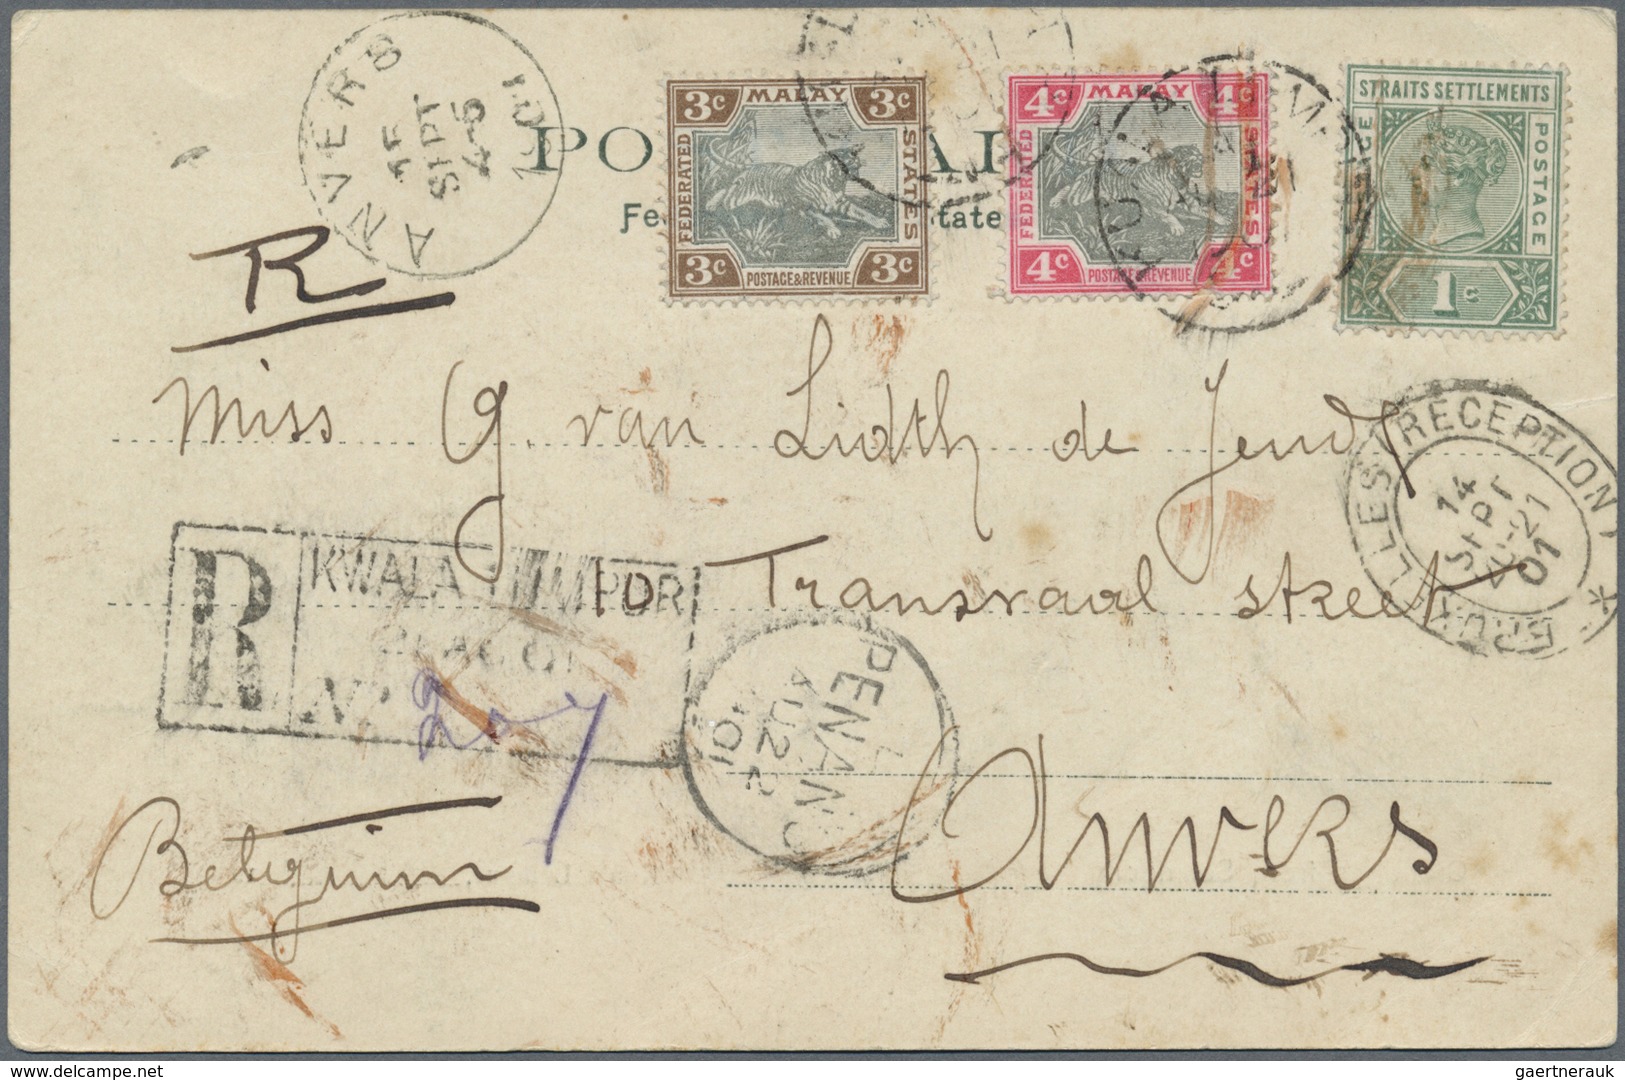 ANVERS
15
SEPT
4-5
1901
3c MALAY 3c
FEDERATED
STATES
3c POSTAGE & REVENUE 3c
4c MALAY 4c
FEDERATED
STATES
4c POSTAGE & REVENUE 4c
STRAITS SETTLEMENTS
POSTAGE
1c
R
Miss G. van Lidth de Jeude
10 Transvaal street
Anvers
Belgium
R
KWALA LUMPOR
SELANGOR
No
207
PENANG
AU 22
1901
BRUXELLES (RECEPTION) *
14
SEPT
01
delcampe.net
gaertnerauk